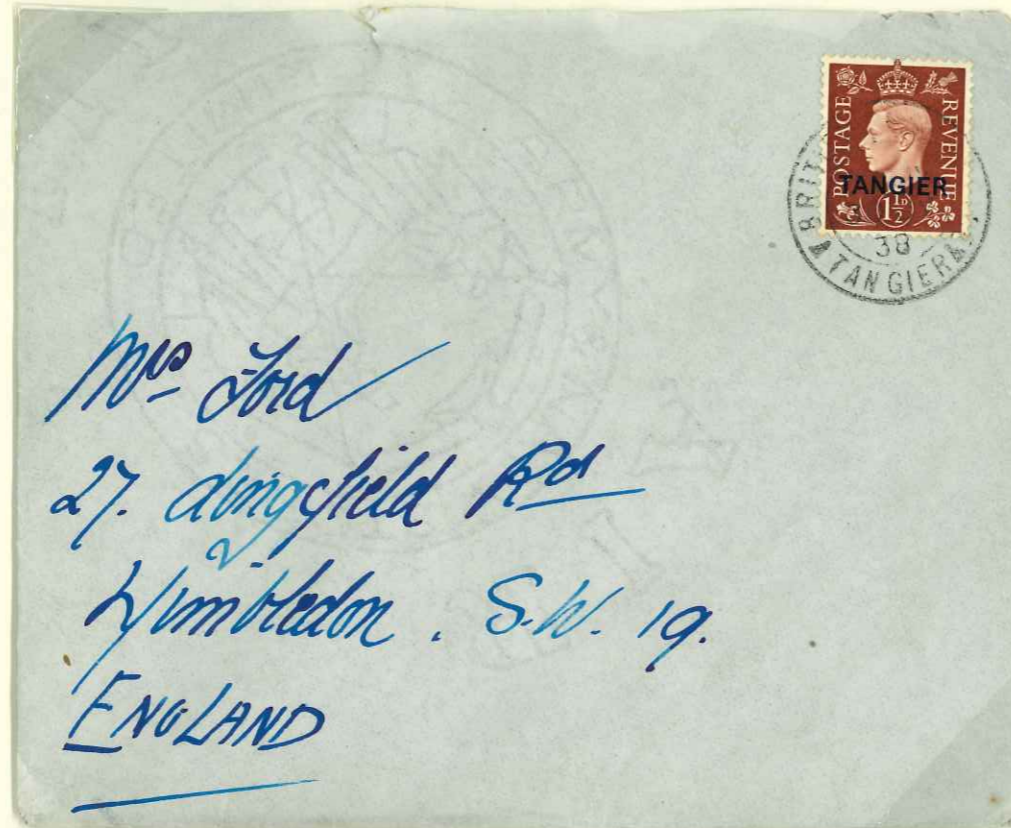 POSTAGE REVENUE
TANGIER
1½D
38
TANGIER
Mrs Ford
27. Lingfield Rd
Wimbledon. S.W. 19.
ENGLAND